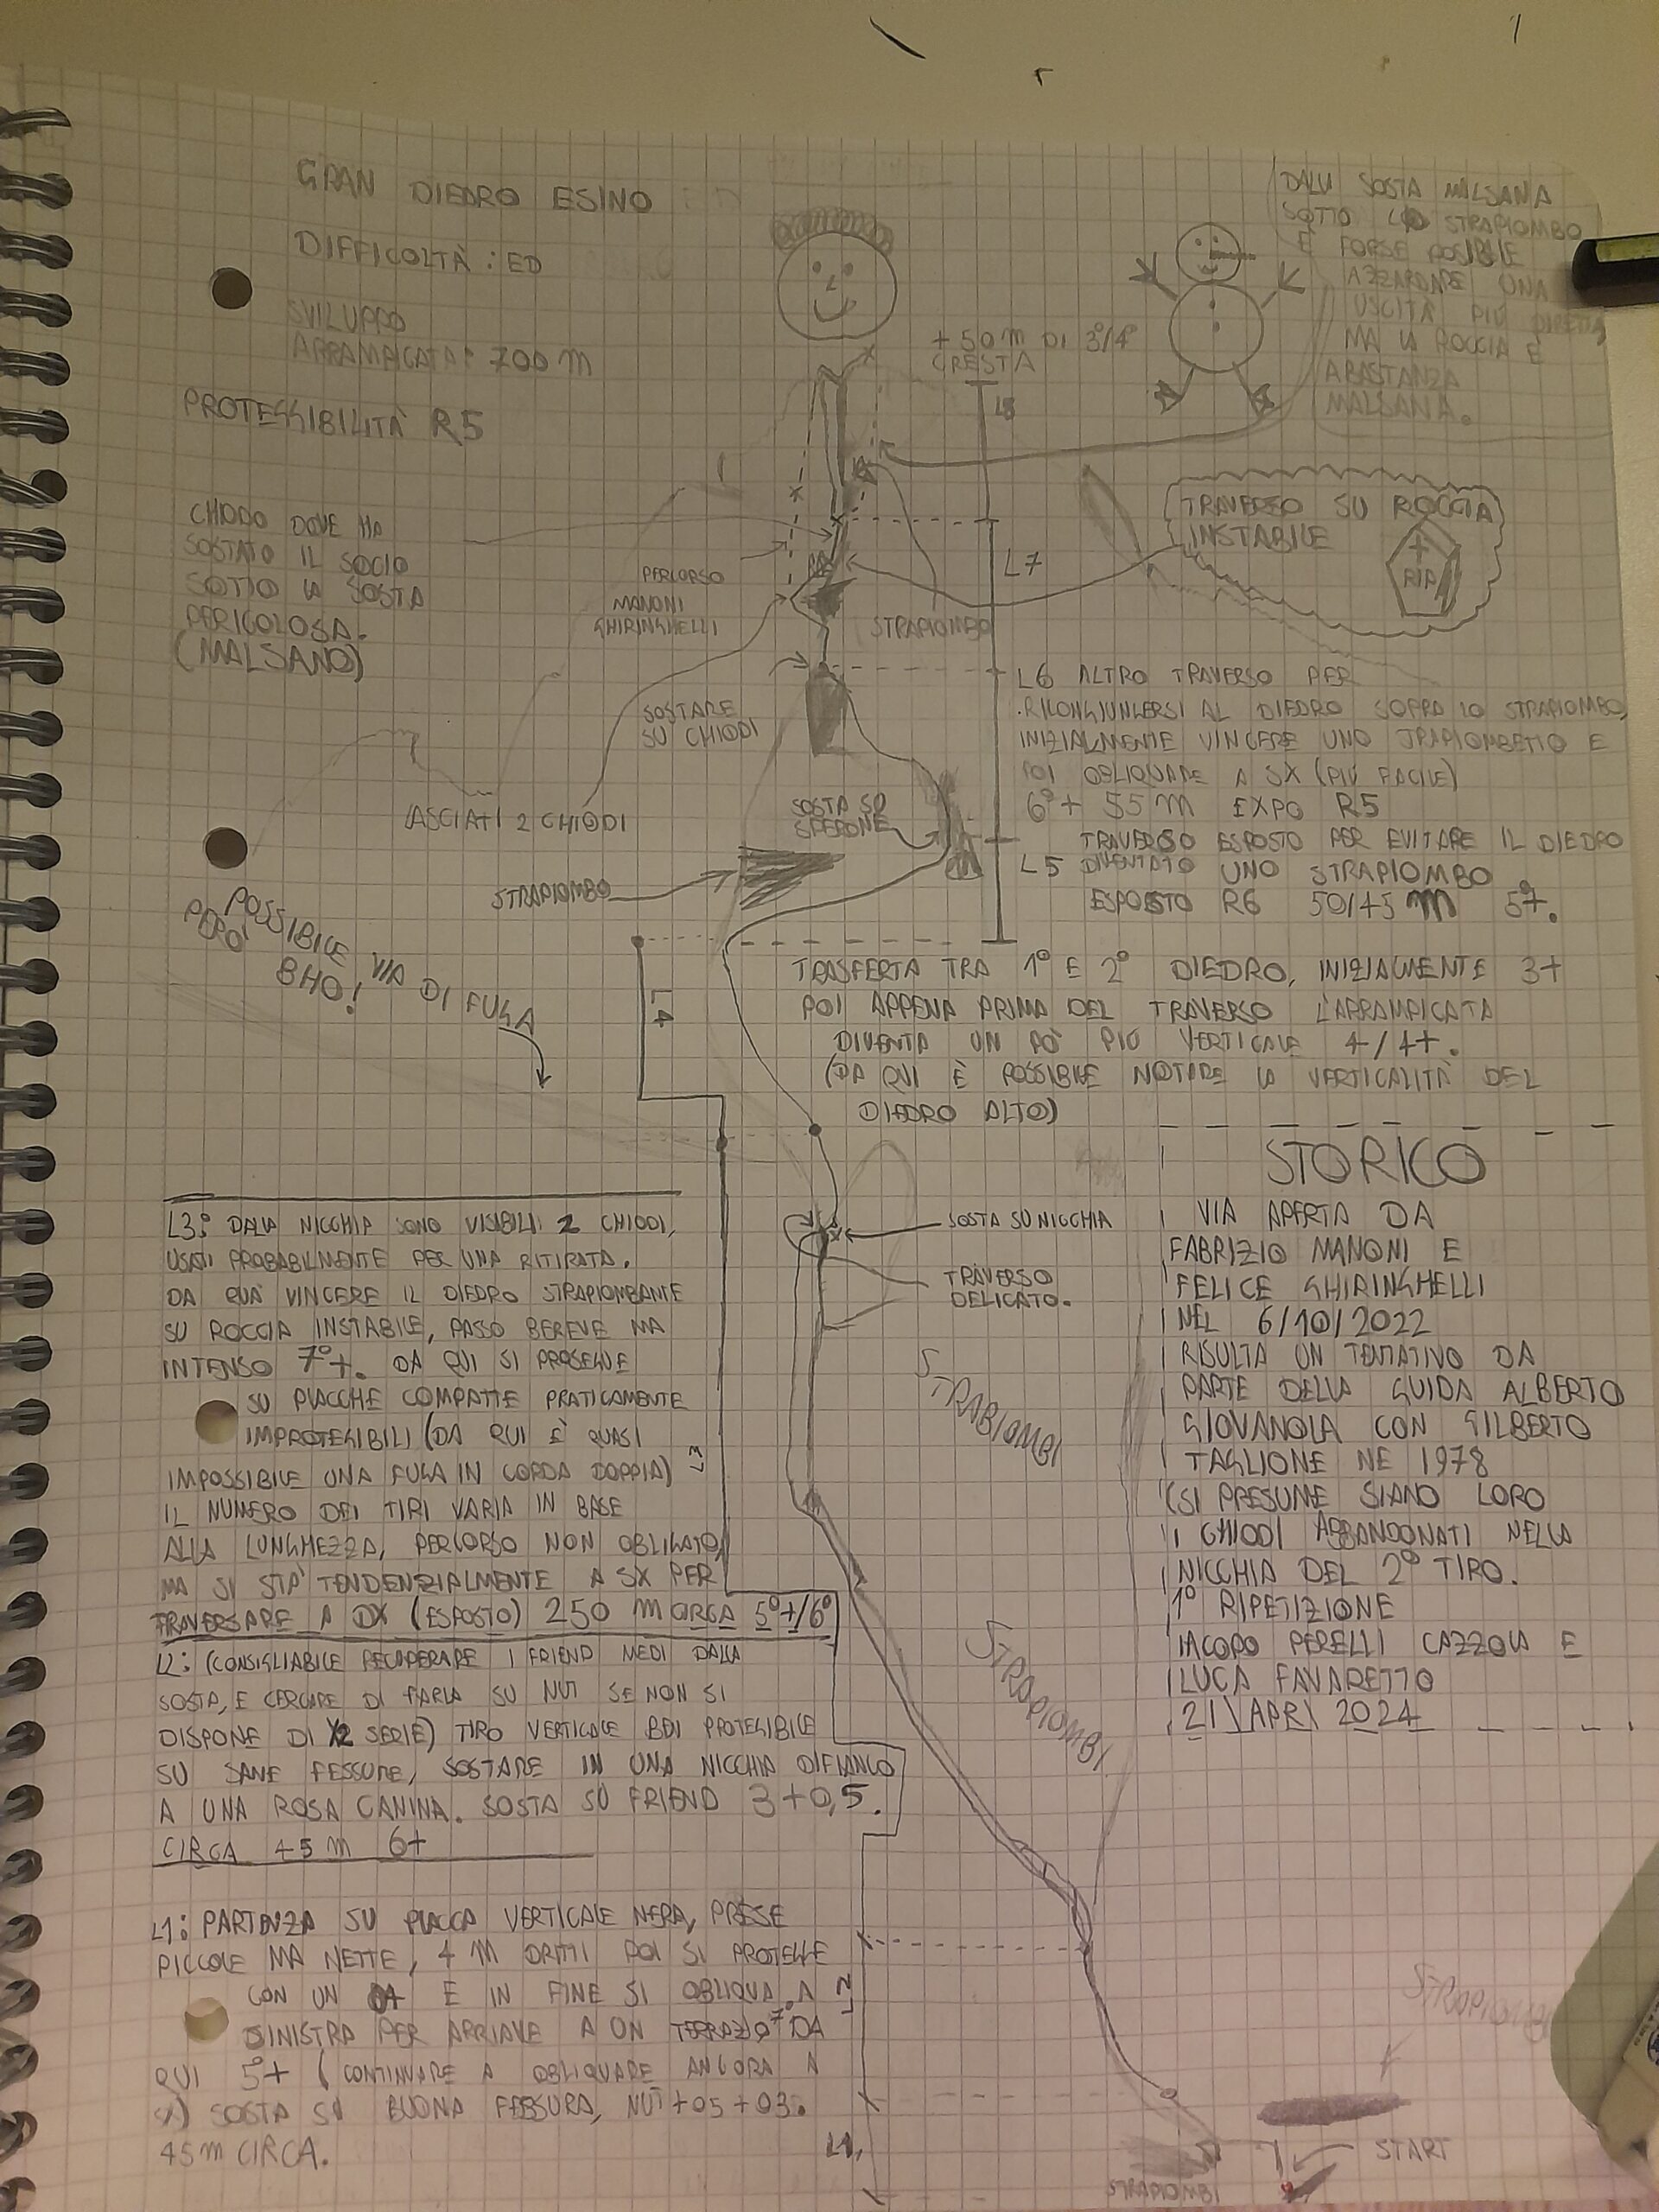 GRAN DIEDRO ESINO
DIFFICOLTÀ: ED
SVILUPPO
ARRAMPICATA: 700 m
PROTEGGIBILITÀ R5
DALLA SOSTA MALSANA
SOTTO LO STRAPIOMBO
È FORSE POSIBILE
AZZARDARE UNA
USCITA PIÙ DIRETTA,
MA LA ROCCIA È
ABASTANZA
MALSANA.
+ 50 m DI 3°/4°
CRESTA
L8
CHIODO DOVE HA
SOSTATO IL SOCIO
SOTTO LA SOSTA
PERICOLOSA.
(MALSANO)
TRAVERSO SU ROCCIA
INSTABILE
RIP
L7
PERCORSO
MANONI
GHIRINGHELLI
STRAPIOMBO
SOSTARE
SU CHIODI
LASCIATI 2 CHIODI
L6 ALTRO TRAVERSO PER
RICONGIUNGERSI AL DIEDRO SOPRA LO STRAPIOMBO,
INIZIALMENTE VINCERE UNO STRAPIOMBETTO E
POI OBLIQUARE A SX (PIÙ FACILE)
6°+ 55 m EXPO R5
SOSTA SU
SPERONE
STRAPIOMBO
TRAVERSO ESPOSTO PER EVITARE IL DIEDRO
L5 DIVENTATO UNO STRAPIOMBO
ESPOSTO R6 50/45 m 5°+.
POSSIBILE VIA DI FUGA
PERÒ BHO!
L4
TRASFERTA TRA 1° E 2° DIEDRO, INIZIALMENTE 3+
POI APPENA PRIMA DEL TRAVERSO L'ARRAMPICATA
DIVENTA UN PÒ PIÙ VERTICALE 4/4+.
(DA QUI È POSSIBILE NOTARE LA VERTICALITÀ DEL
DIEDRO ALTO)
SOSTA SU NICCHIA
TRAVERSO
DELICATO.
L3: DALLA NICCHIA SONO VISIBILI 2 CHIODI,
USATI PROBABILMENTE PER UNA RITIRATA.
DA QUA VINCERE IL DIEDRO STRAPIOMBANTE
SU ROCCIA INSTABILE, PASSO BEREVE MA
INTENSO 7°+. DA QUI SI PROSEGUE
SU PLACCHE COMPATTE PRATICAMENTE
IMPROTEGIBILI (DA QUI È QUASI
IMPOSSIBILE UNA FUGA IN CORDA DOPPIA)
IL NUMERO DEI TIRI VARIA IN BASE
ALLA LUNGHEZZA, PERCORSO NON OBLIGATO,
MA SI STÀ TENDENZIALMENTE A SX PER
TRAVERSARE A DX (ESPOSTO) 250 m CIRCA 5°+/6°
L3
STRABIOMBI
STRAPIOMBI
STORICO
VIA APERTA DA
FABRIZIO MANONI E
FELICE GHIRINGHELLI
NEL 6/10/2022
RISULTA UN TENTATIVO DA
PARTE DELLA GUIDA ALBERTO
GIOVANOLA CON GILBERTO
TAGLIONE NE 1978
(SI PRESUME SIANO LORO
I CHIODI ABBANDONATI NELLA
NICCHIA DEL 2° TIRO.
1° RIPETIZIONE
IACOPO PERELLI CAZZOLA E
LUCA FAVARETTO
21\APR\2024
L2: (CONSIGLIABILE RECUPERARE I FRIEND MEDI DALLA
SOSTA, E CERCARE DI FARLA SU NUT SE NON SI
DISPONE DI 2 SERIE) TIRO VERTICALE BEN PROTEGIBILE
SU SANE FESSURE, SOSTARE IN UNA NICCHIA DIFIANCO
A UNA ROSA CANINA. SOSTA SU FRIEND 3+0,5.
CIRCA 45 m 6+
L2
L1: PARTENZA SU PLACCA VERTICALE NERA, PRESE
PICCOLE MA NETTE, 4 M DRITTI POI SI PROTEGGE
CON UN E IN FINE SI OBLIQUA A
SINISTRA PER ARRIAVE A UN TERRAZO 7° DA
QUI 5°+ (CONTINUARE A OBLIQUARE ANCORA A
SX) SOSTA SU BUONA FESSURA, NUT+05+03.
45m CIRCA.
L1
STRAPIOMBI
START
STRAPIOMBI